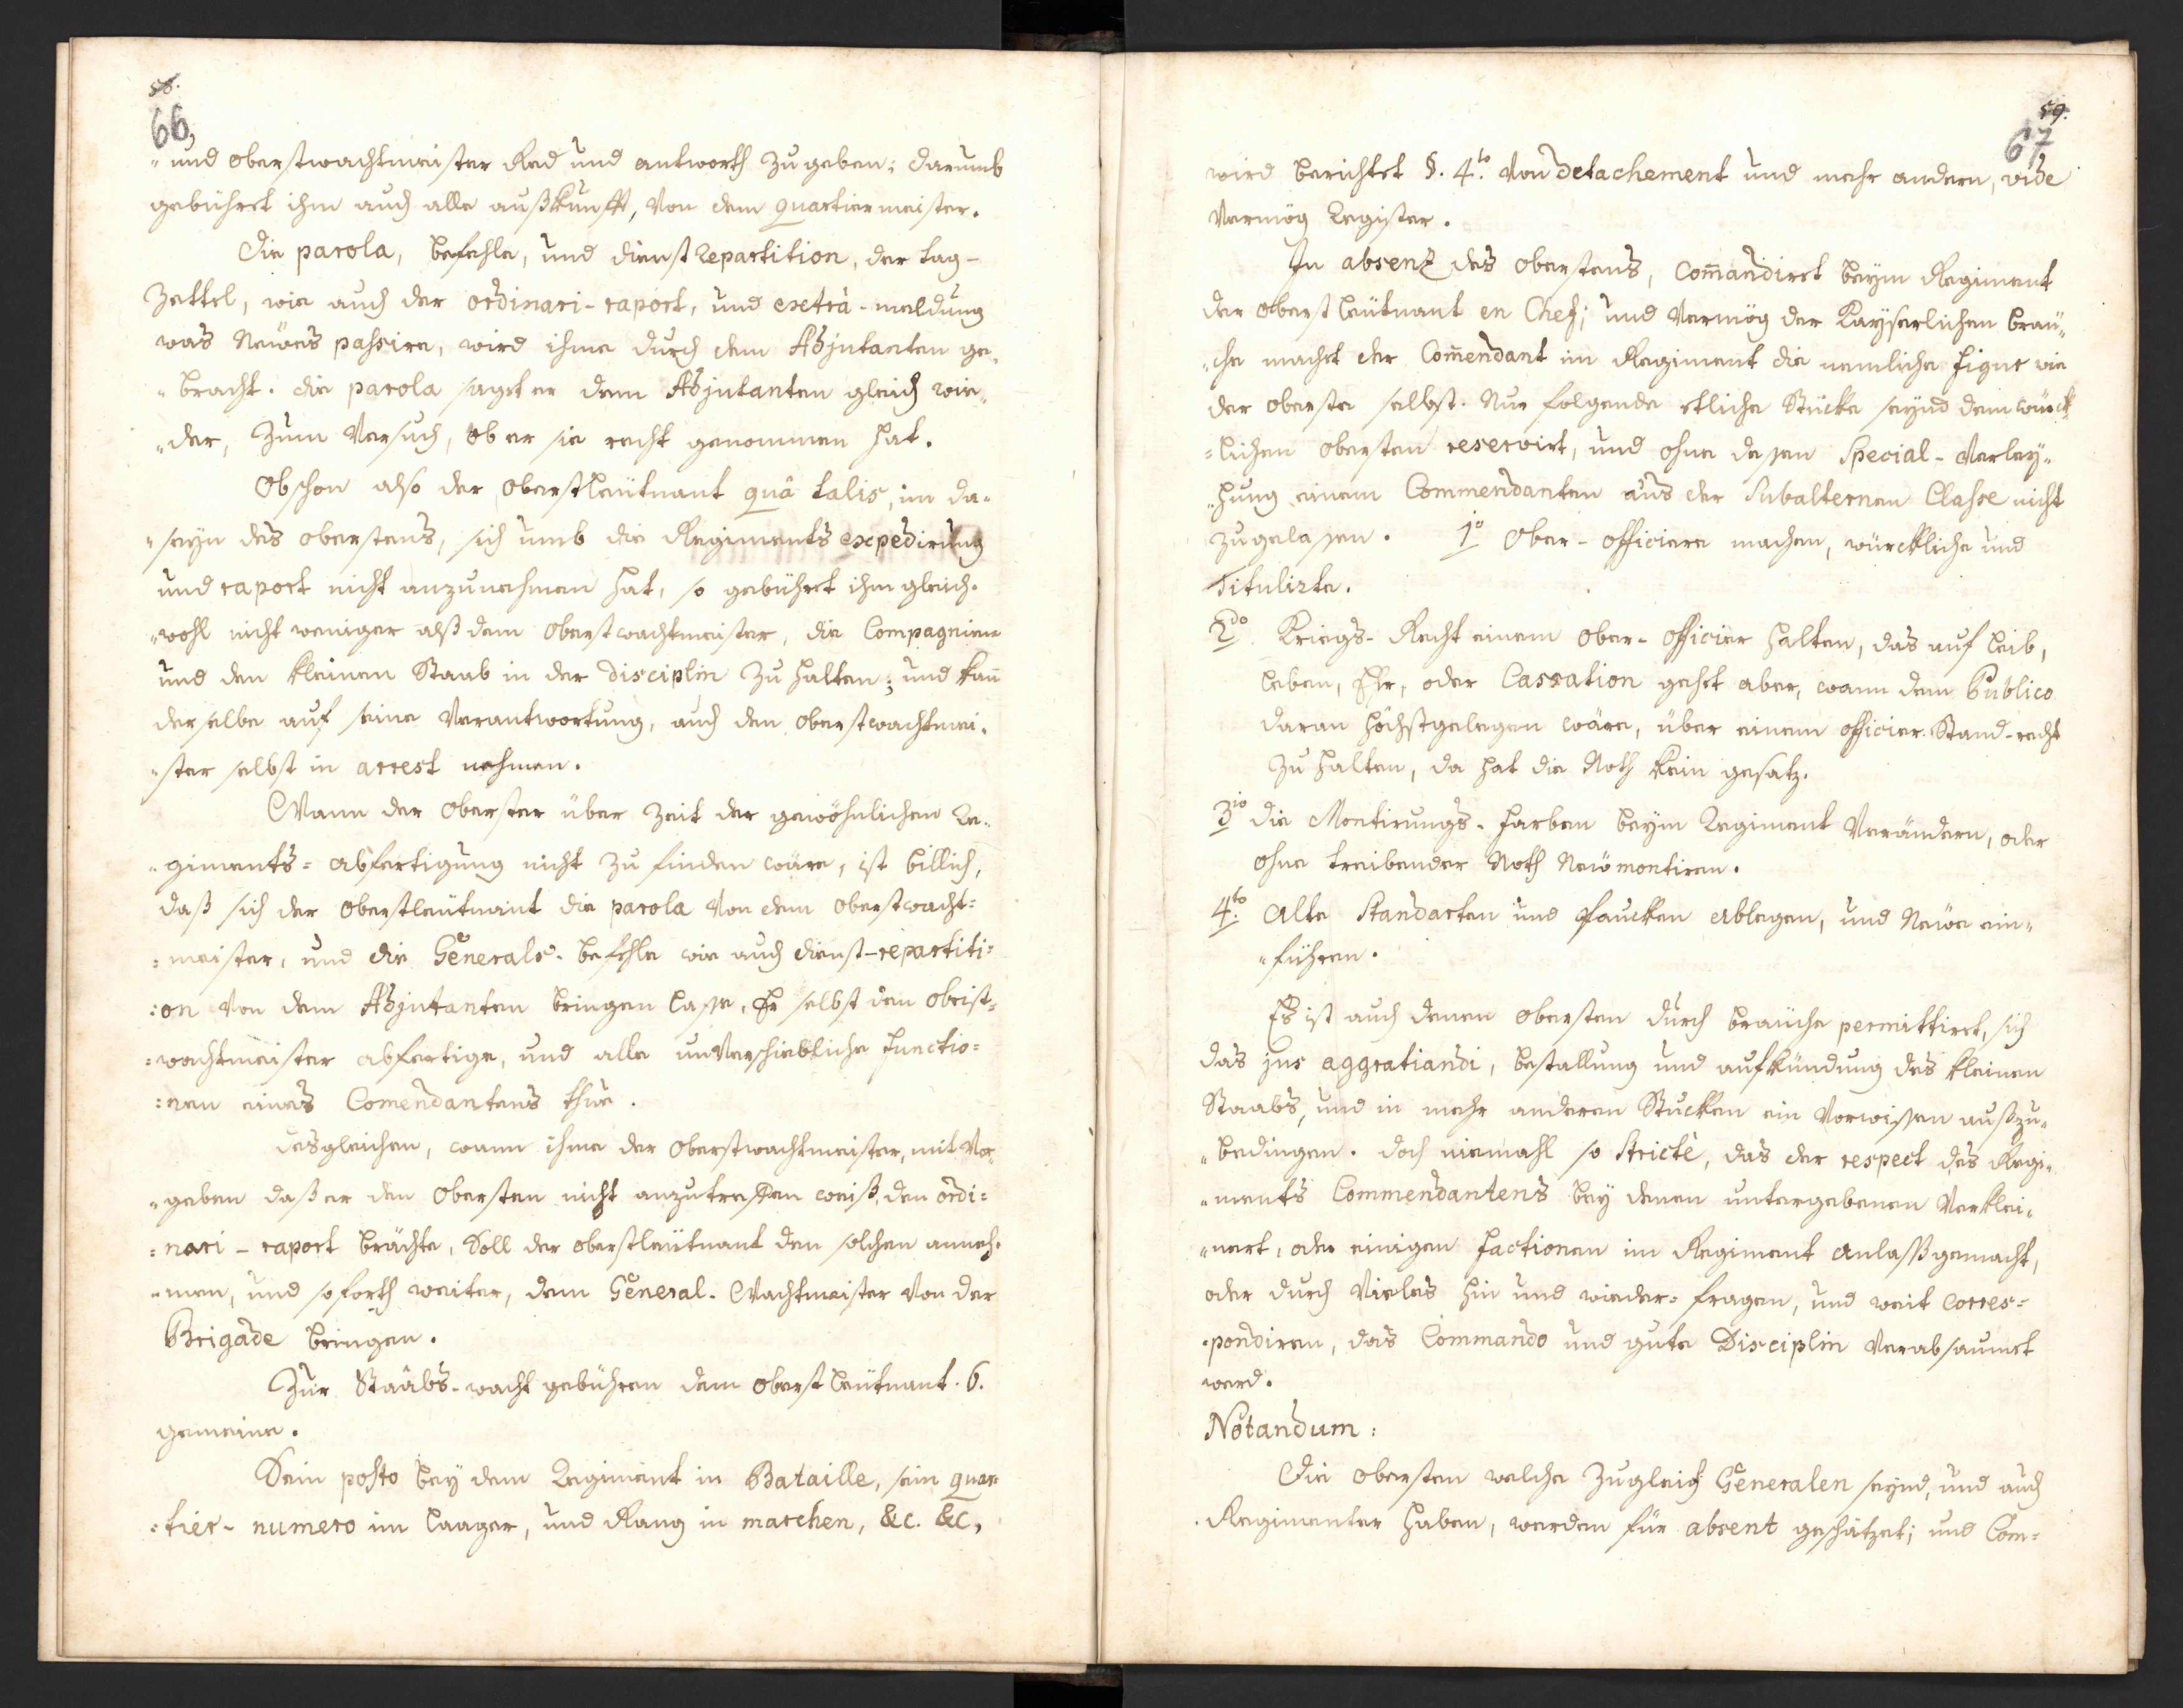 58.
66,
„und oberstwachtmeister Red und antworth zu geben; darumb
gebühret ihm auch alle außkunfft, von dem quartiermeister.
Die parola, befehle, und dienst repartition, der tag-
zettel, wie auch der ordinari-raport, und extra-meldung
was Neües passire, wird ihme durch dem Adjutanten ge„
„bracht. die parola saget er dem Adjutanten gleich wie„
„der, zum Versuch, ob er sie recht genommen hat.
Obschon also der oberstleütnant quâ talis, im da„
„seyn des oberstens, sich umb die Regiments expedirung
und raport nicht anzunehmen hat, so gebühret ihm gleich„
„wohl nicht weniger alß dem oberstwachtmeister, die Compagnien
und den kleinen Staab in der disciplin zu halten; und kan̄
derselbe auf seine Verantwortung, auch den oberstwachtmei„
„ster selbst in arrest nehmen.
Wann der oberster über zeit der gewöhnlichen Re„
„giments=abfertigung nicht zu finden wäre, ist billich,
daß sich der oberstleütnant die parola von dem oberstwacht=
=meister, und die Generals-befehle wie auch dienst-repartiti=
=on von dem Adjutanten bringen lasse, Er selbst den obrist=
=wachtmeister abfertige, und alle unverschiebliche functio=
=nen eines Comendantens thüe.
Desgleichen, wann ihme der oberstwachtmeister, mit Vor„
„geben daß er den obersten nicht anzutreffen weiß, den ordi=
=nari-raport brächte, Soll der oberstleütnant den solchen anneh„
„men, und soforth weiter, dem General-Wachtmeister von der
Brigade bringen.
Zur Staabs-wacht gebühren dem oberst leütnant. 6.
gemeine.
Sein posto bey dem Regiment in Bataille, sein quar
=tier-numero im laager, und Rang in marchen, &c. &c,
59.
67
wird berichtet §. 4.to von detachement und mehr andern, vide
vermög Register.
In absenz des oberstens, Com̄andiret beym Regiment
der oberst leütnant en Chef; und vermög der Kayserlichen breü„
„che machet der Com̄endant im Regiment die nemliche figur wie
der oberste selbst. Nur folgende etliche Stücke seynd dem würck
=lichen obersten reservirt, und ohne dessen Special-Verley„
„hung einem Commendanten aus der Subalternen Classe nicht
zugelassen. 1o Ober-officiere machen, würckliche und
Titulirte.
2do. Kriegs-Recht einem ober-officier halten, das auf leib,
leben, Ehr, oder Cassation gehet aber, wann dem Publico
daran höchstgelegen wäre, über einem officier Stand-recht
zu halten, da hat die Noth kein gesatz.
3io die Montirungs-farben beym Regiment verändern, oder
ohne treibender Noth Neü montiren.
4.to Alte Standarten und Paucken ablegen, und Neüe ein„
„führen.
Es ist auch denen obersten durch breüche permittiret, sich
das jus aggratiandi, bestallung und aufkündung des kleinen
Staabs, und in mehr anderen Stucken ein Vorwissen außzu„
„bedingen. doch niemahl so strictè, das der respect des Regi„
„ments Commendantens bey denen untergebenen verklei„
„nert, oder einigen factionen im Regiment anlaß gemacht,
oder durch Vieles hin und wieder=fragen, und weit corres=
=pondiren, das Commando und gute Disciplin verabsaumet
werd.
Notandum:
Die obersten welche zugleich Generalen seynd, und auch
Regimenter haben, werden für absent geschätzet; und Com=